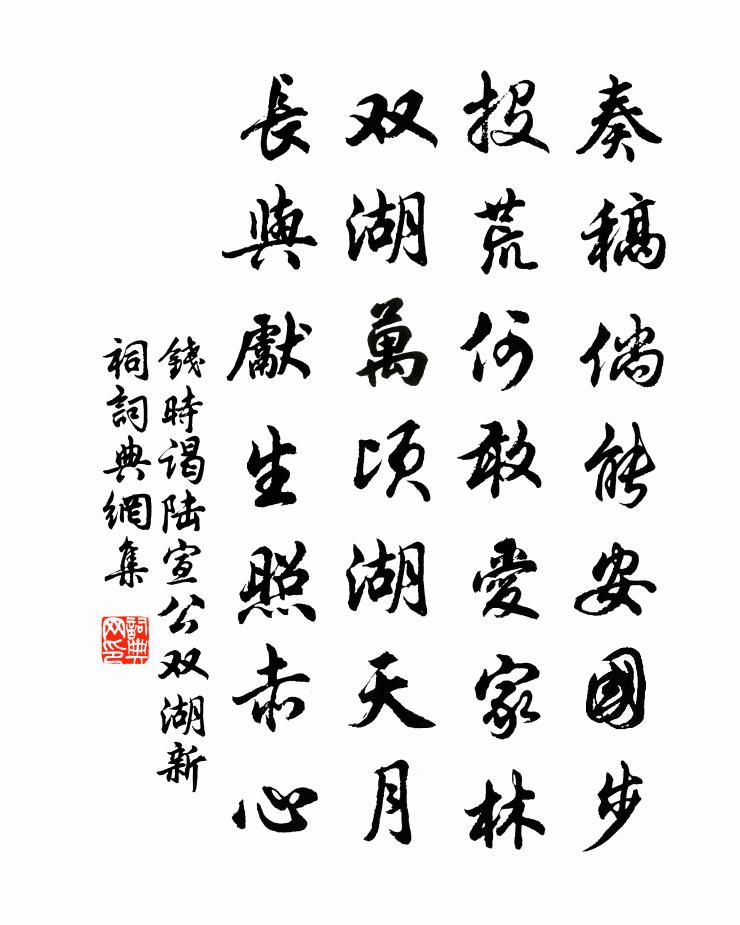 奏稿倘能安國步
投荒何敢愛家林
双湖萬頃湖天月
長與獻生照赤心
錢時謁陸宣公双湖新
祠詞典網集
詞典
网印